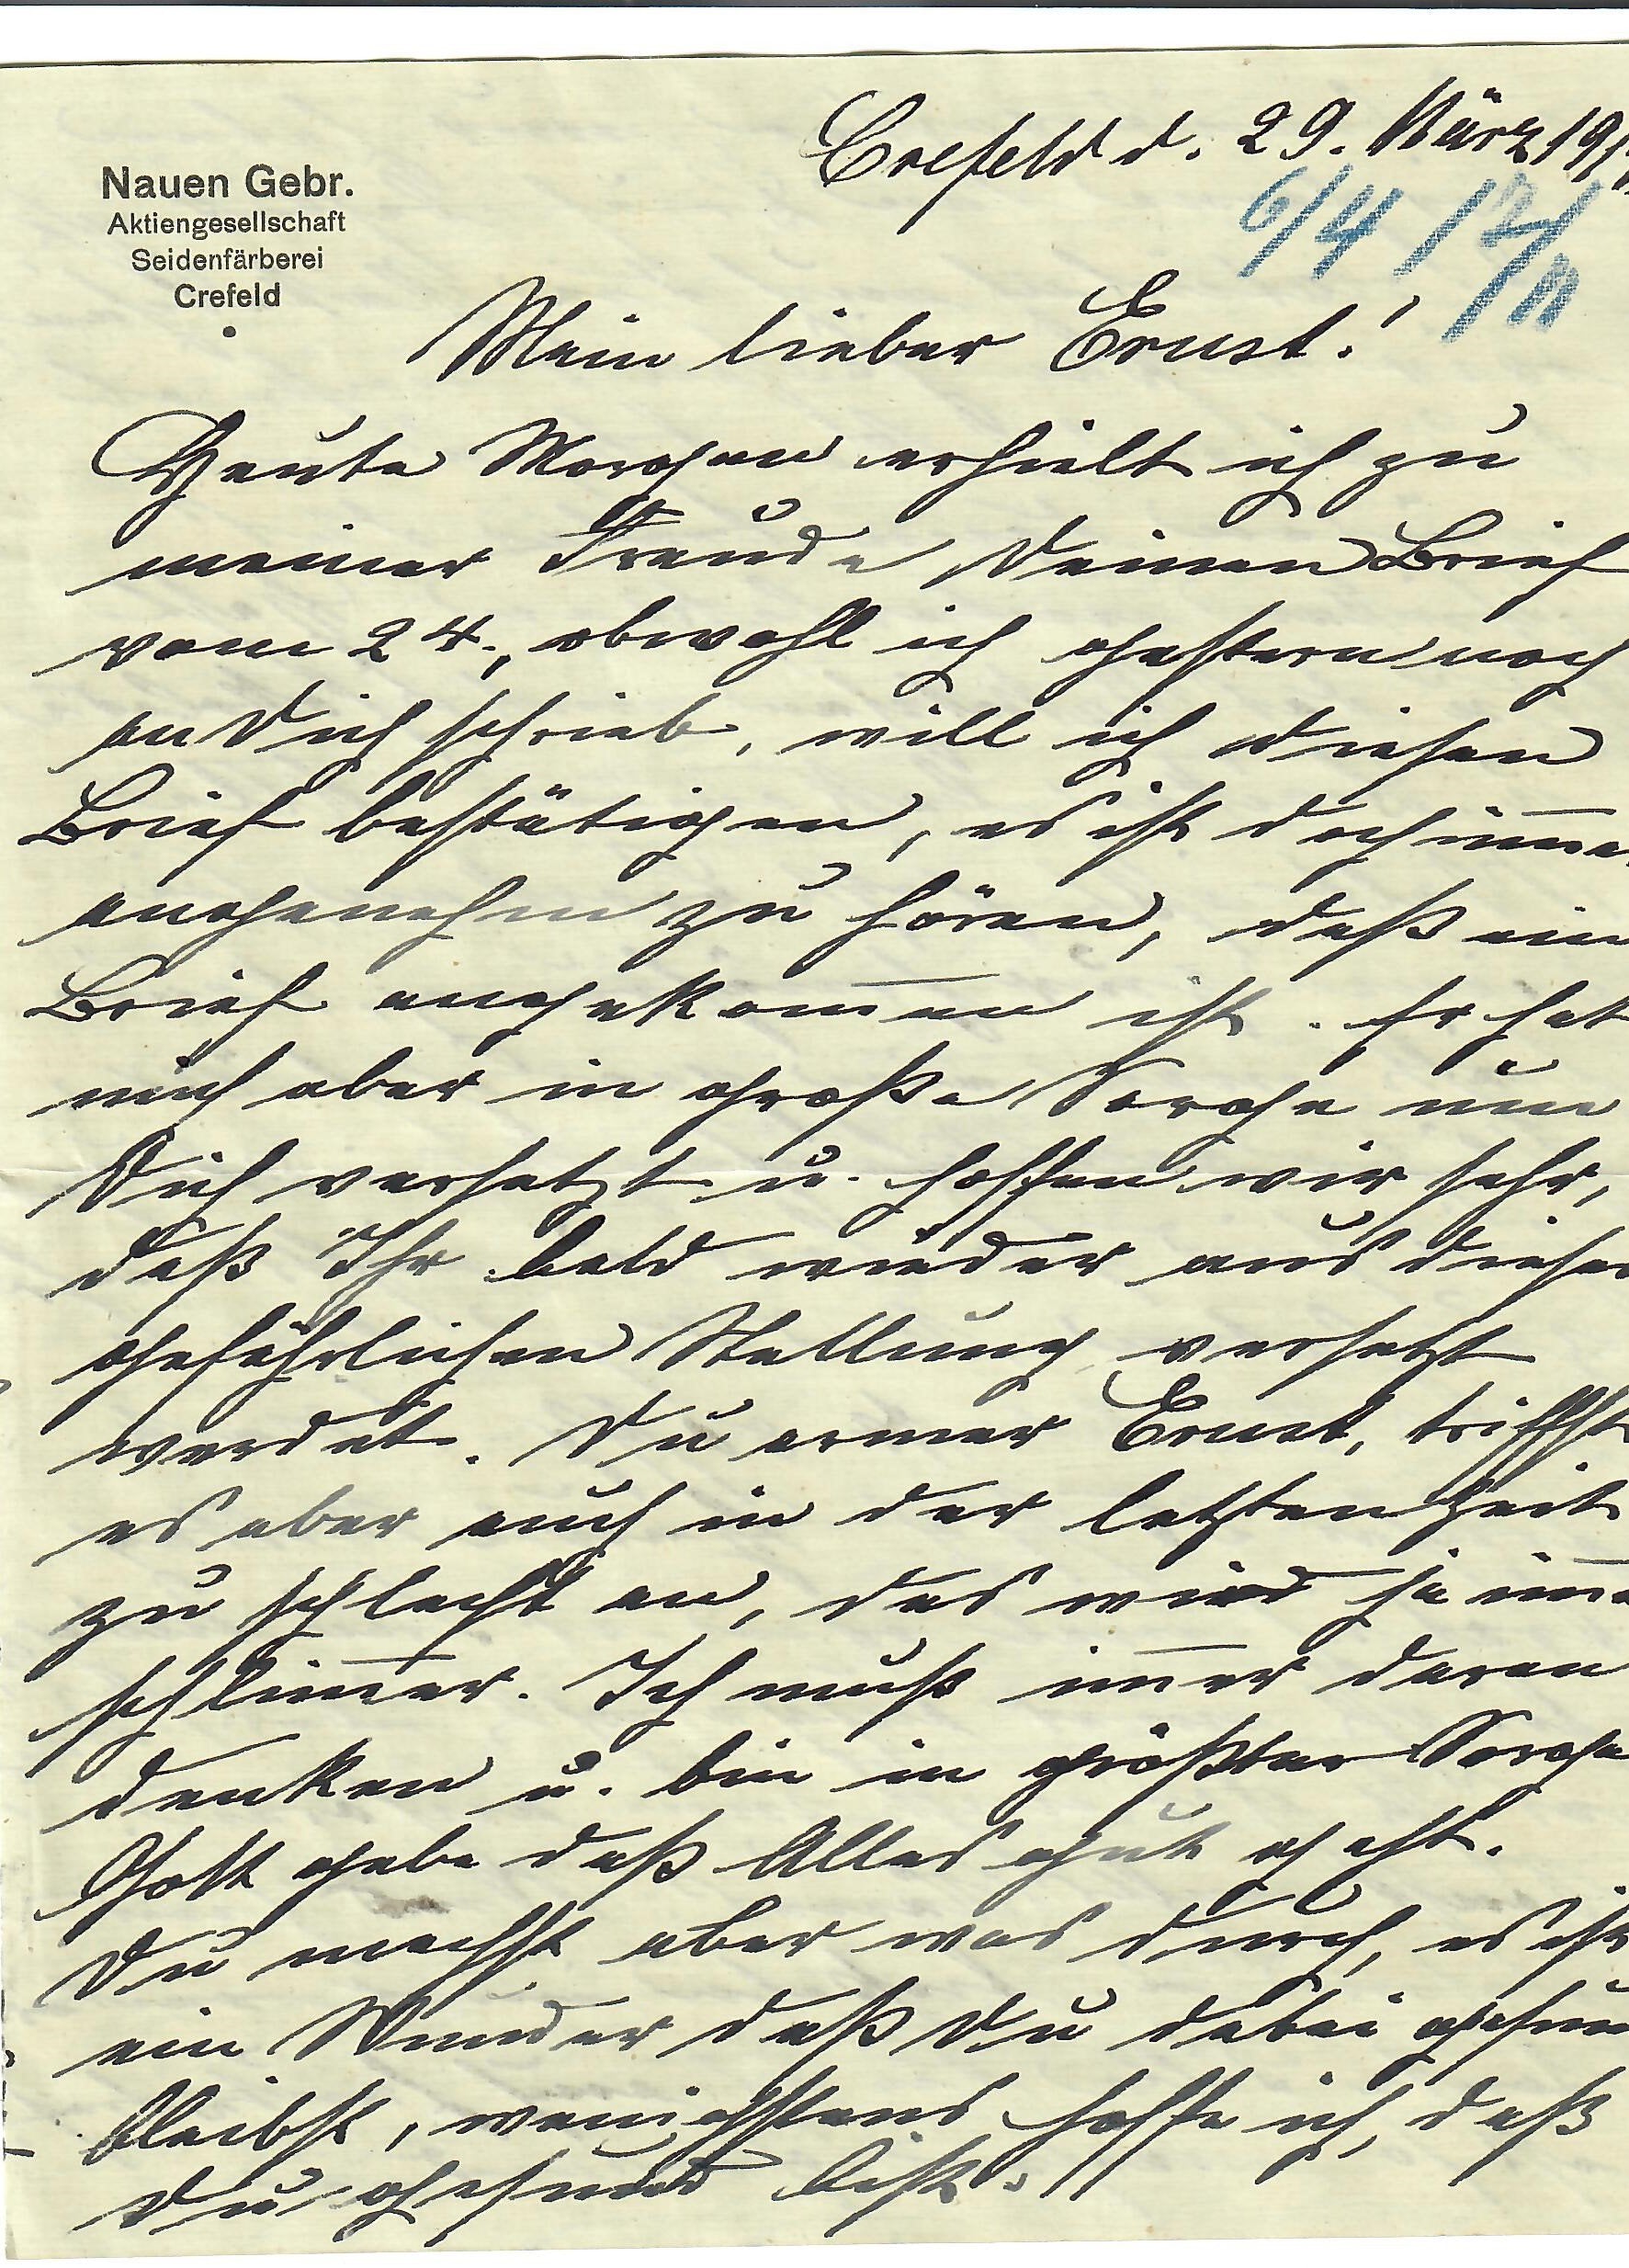 Crefeld d. 29. März 19
6/4 17
Nauen Gebr.
Aktiengesellschaft
Seidenfärberei
Crefeld
Mein lieber Ernst!
Heute Morgen erhielt ich zu
meiner Freude Deinen Brief
vom 24., obwohl ich gestern noch
an Dich schrieb, will ich diesen
Brief bestätigen, es ist doch im̅e
angenehm zu hören, daß ein
Brief angekom̅en ist. Er hat
mich aber in große Sorge um
Dich versetzt u. hoffen wir sehr,
daß Ihr bald wieder aus dieser
gefährlichen Stellung versetzt
werdet. Du armer Ernst, triffst
es aber auch in der letzten Zeit
zu schlecht an, das wird ja im̅
schlim̅er. Ich muß im̅er daran
denken u. bin in größter Sorge
Gott gebe daß Alles gut geht.
Du machst aber was durch, es ist
ein Wunder daß Du dabei gesun
bleibst, wenigstens hoffe ich, daß
Du gesund bist.